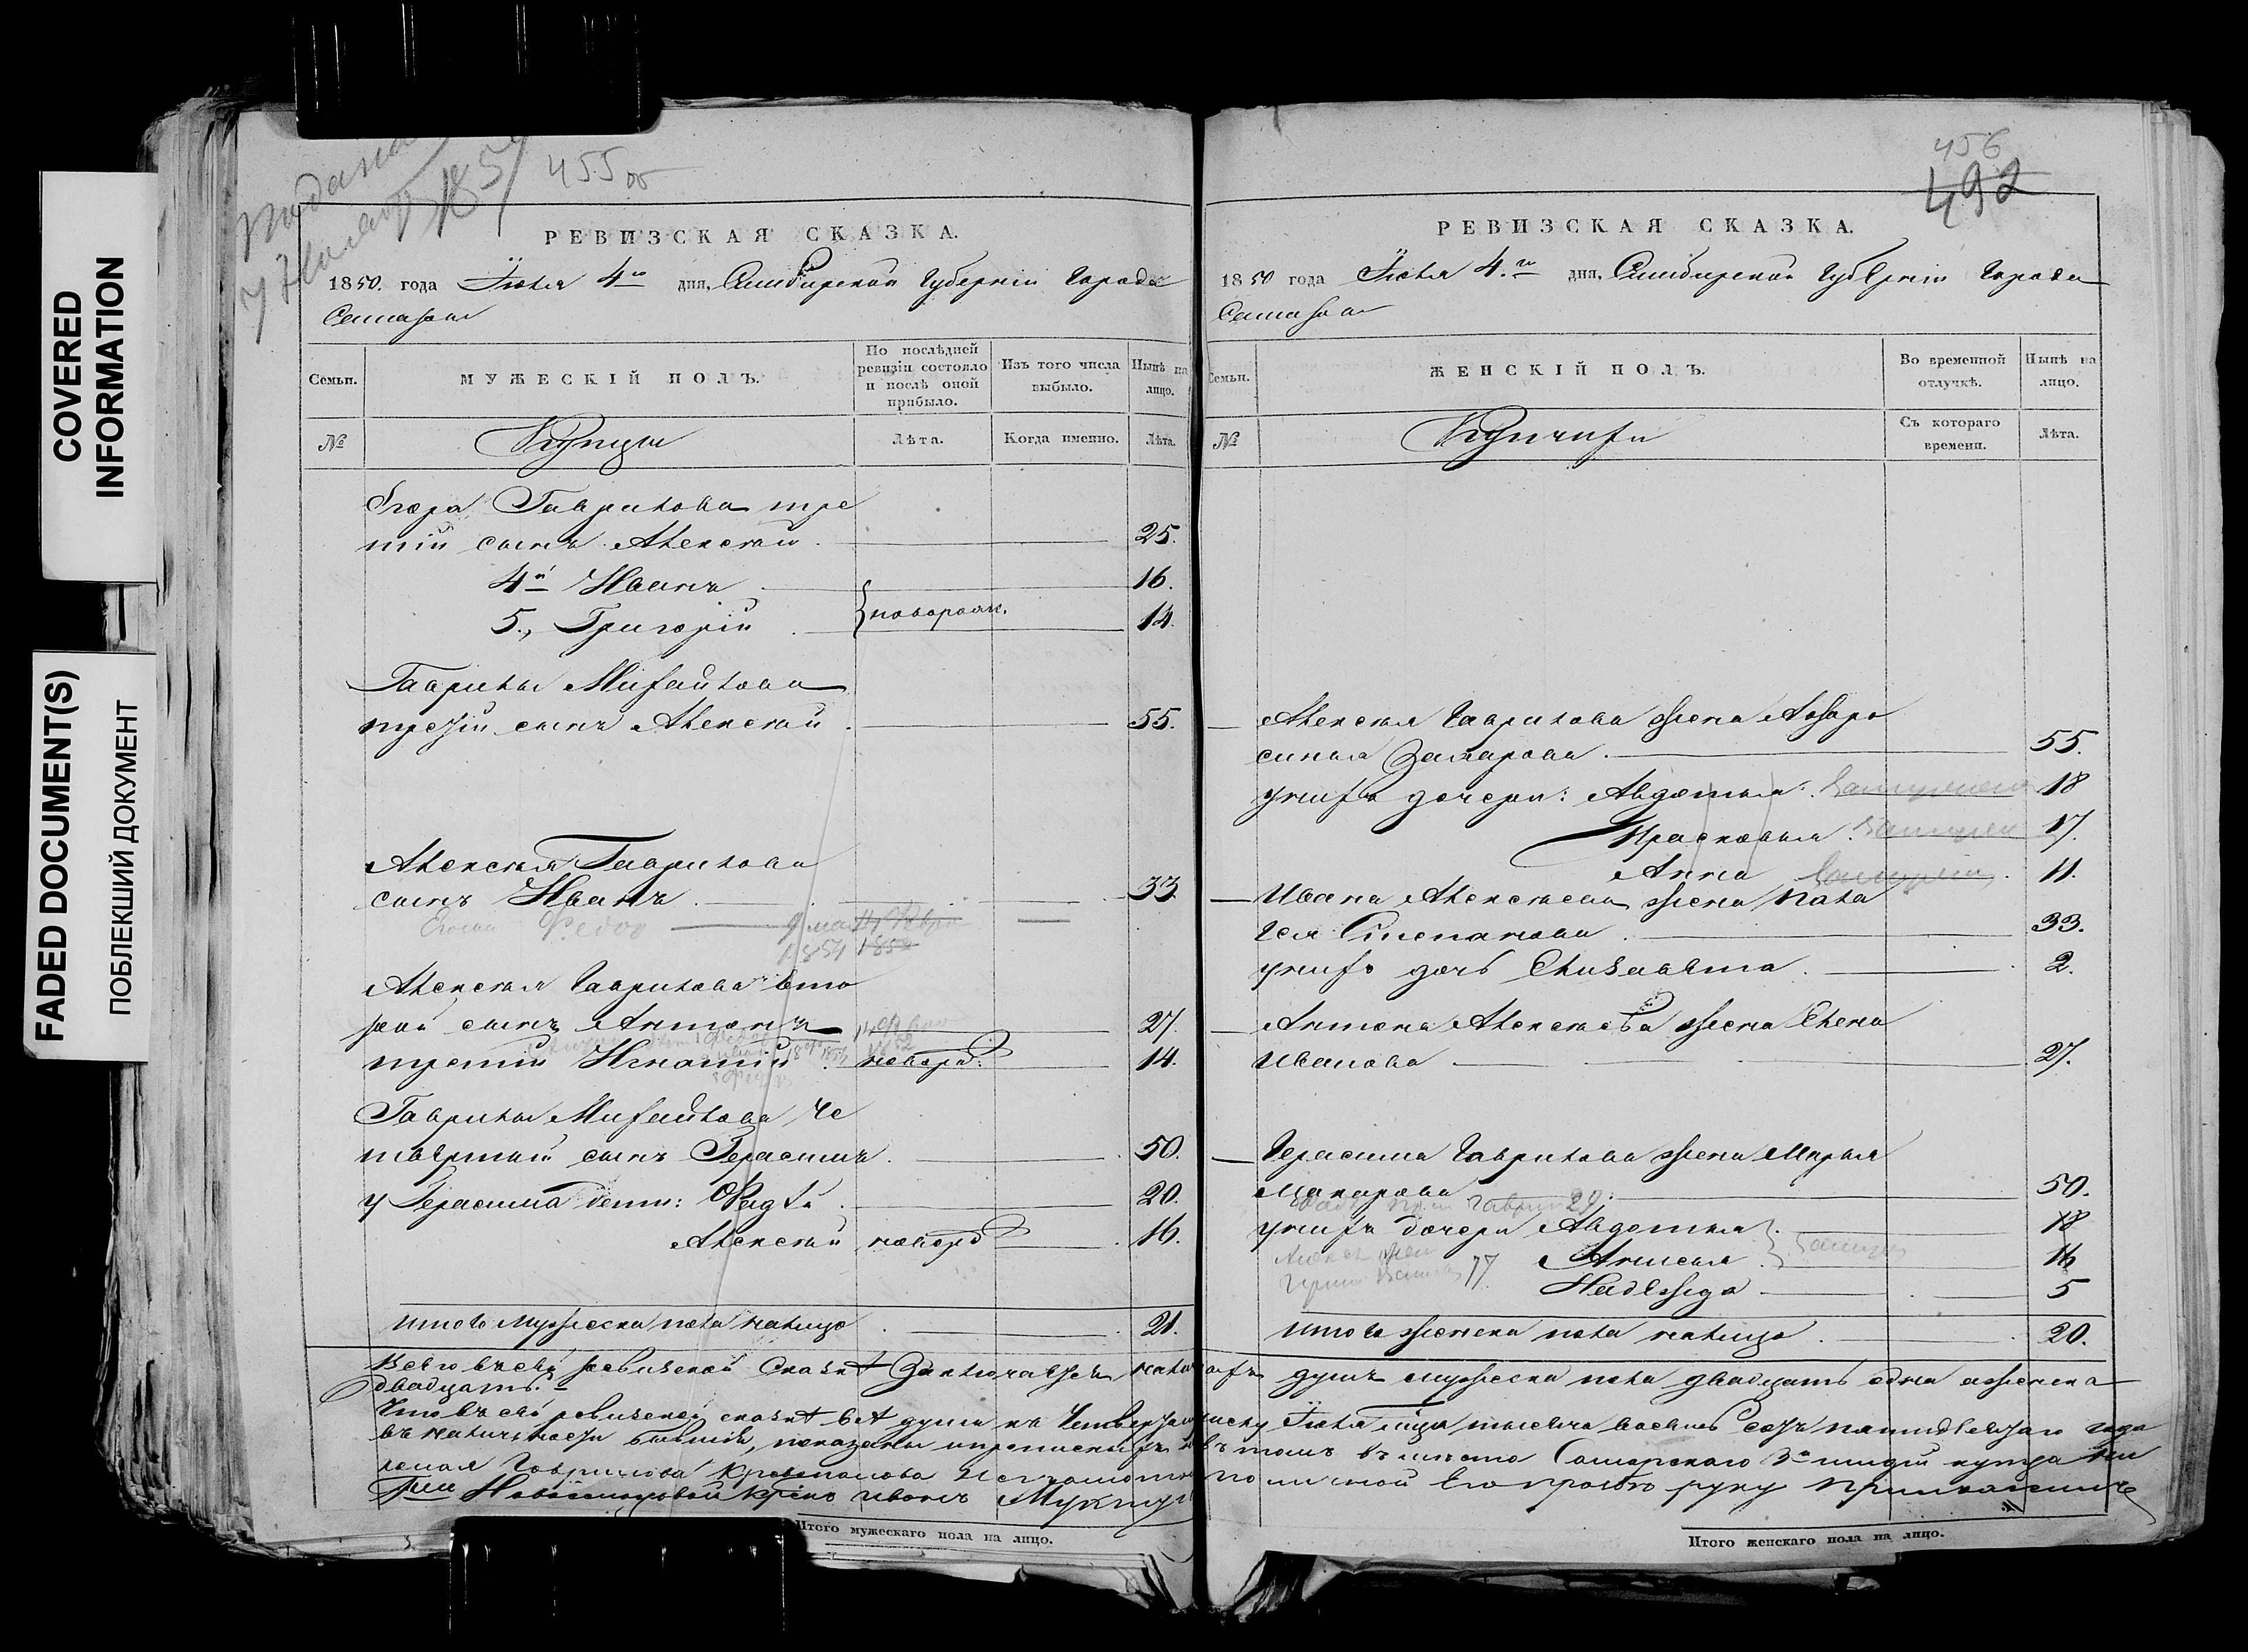 COVERED
INFORMATION
FADED DOCUMENT(S)
ПОБЛЕКШИЙ ДОКУМЕНТ
1857 455об
РЕВИЗСКАЯ СКАЗКА.
1850. года Іюля 4го дня, Симбирской Губерніи Города
Самары
Семьи.
МУЖЕСКІЙ ПОЛЪ.
По послѣдней ревизіи состояло и послѣ оной прибыло.
Изъ того числа выбыло.
Нынѣ на лицо.
№
Купцы
Лѣта.
Когда именно.
Лѣта.
Егора Гаврилова тре
тій сынъ Алексѣй 25.
4й Иванъ 16.
5., Григорій новорожд. 14.
Гаврилы Михайлова
третій сынъ Алексѣй 55.
Алексѣя Гаврилова
сынъ Иванъ 33
Федор
1854 1852
Алексѣя Гаврилова вто
рой сынъ Антонъ 27.
третій Игнатій новорж: 14.
Гаврилы Михайлова че
твертый сынъ Герасимъ 50.
у Герасима дети: Фадѣй 20.
Алексѣй новорд 16.
Итого мужеска пола налицо 21.
456
492
РЕВИЗСКАЯ СКАЗКА.
1850 года Іюля 4.го дня, Симбирской Губерніи Города
Самары
Семьи.
ЖЕНСКІЙ ПОЛЪ.
Во временной отлучкѣ.
Нынѣ на лицо.
№
Купчихи
Съ котораго времени.
Лѣта.
Алексѣя Гаврилова жена Афро
синья Захарова 55.
у нихъ дочери: Авдотья 18
Прасковья 17.
Анна 11.
Ивана Алексѣева жена Пала
гея Степанова 33.
у нихъ дочь Елизавета 2.
Антона Алексѣева жена Елена
Иванова 27.
Герасима Гаврилова жена Марья
Макарова 50.
у нихъ дочери Авдотья 18
Анисья 16
Надежда 5
Итого женска пола налицо 20.
Всего въ сей ревизской сказкѣ заключается наличныхъ душъ мужеска пола двадцать одна а женска
двадцать.
Что въ сей ревизской сказкѣ всѣ души къ четвертому числу Іюля тысяча восемь сотъ пятидесятаго года
въ наличности бывшія, показаны и прописныхъ нѣтъ въ томъ вместо Самарскаго 3й гильдіи купца
Гаврилова
Иванъ по личной его прозбѣ руку приложилъ
Итого мужескаго пола на лицо.
Итого женскаго пола на лицо.